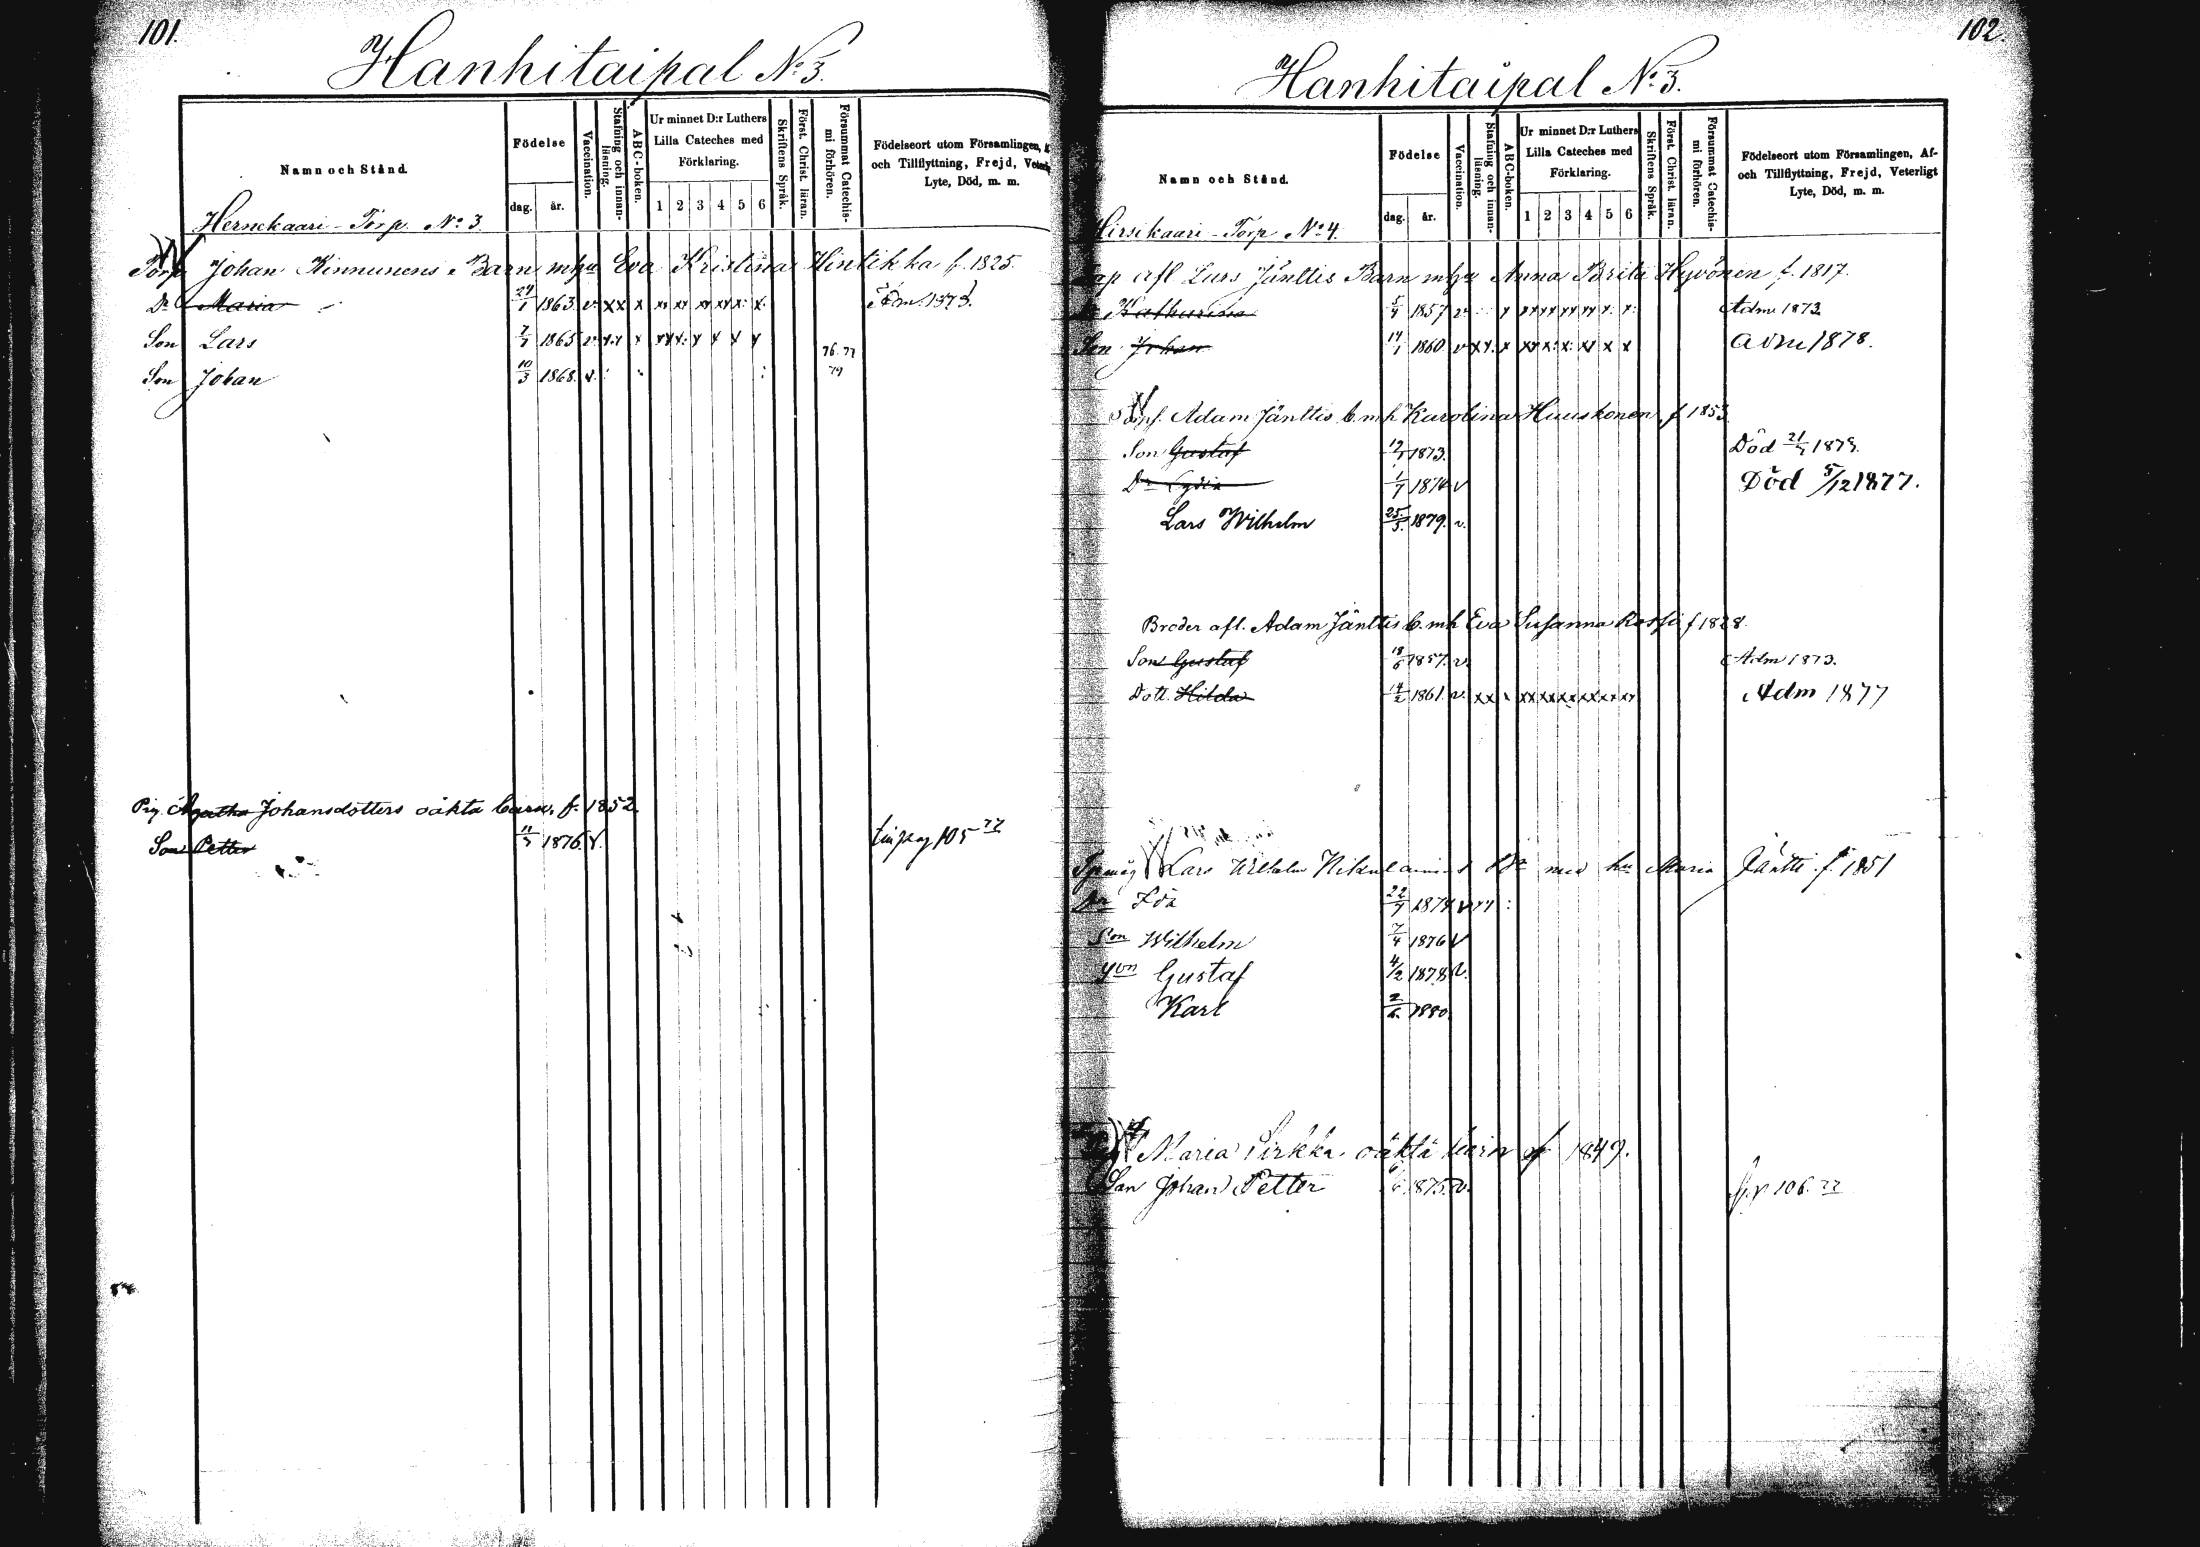 101.
Hanhitaipal No 3.
Namn och Stånd.
Födelse
dag.
år.
Vaccination.
Stafning och innan-läsning.
ABC-boken.
Ur minnet D:r Luthers
Lilla Cateches med
Förklaring.
1 2 3 4 5 6
Skriftens Språk.
Först. Christ. läran.
Försummat Catechis-mi förhören.
Födelseort utom Församlingen,
och Tillflyttning, Frejd,
Lyte, Död, m. m.
Hernekaari - Torp. No 3
Torp Johan Kinnunens Barn mhu Eva Kristina Hintikka f. 1825.
Dr Maria 24/1 1863. v. xx x xx xx xx xx x. x. Adm. 1873.
Son Lars 7/7 1865 v. x.x x xx x. x x x x
Son Johan 10/3 1868. v. 76. 77 79
Pig. Agatha Johansdotters oäkta barn. f. 1852.
Son Petter 11/5 1876 v. pag 105 77
102.
Hanhitaipal No 3.
Namn och Stånd.
Födelse
dag.
år.
Vaccination.
Stafning och innan-läsning.
ABC-boken.
Ur minnet D:r Luthers
Lilla Cateches med
Förklaring.
1 2 3 4 5 6
Skriftens Språk.
Först. Christ. läran.
Försummat Catechis-mi förhören.
Födelseort utom Församlingen, Af-
och Tillflyttning, Frejd, Veterligt
Lyte, Död, m. m.
Hirsikaari - Torp No 4.
afl Lars Jänttis Barn mhu Anna Brita Hyvönen f. 1817.
Katharina 1857 v. x xx xx xx xx x. x. Adm 1873.
Son Johan 1860 v xx. x xx x. x. xx x x Adm 1878.
Adam Jänttis b. mh Karolina Huuskonen f 1853
Son Gustaf 1873. Död 1879.
Dr Lydia 1/7 1874 v Död 5/12 1877.
Lars Wilhelm 25/5. 1879. v.
Broder afl. Adam Jänttis b. mh Eva Susanna Rossi f 1828.
Son Gustaf 18/6 1857. v. Adm 1873.
Dott. Hilda 14/2 1861. v. xx x xx xx xx xx xx xx Adm 1877
Lars Wilhelm Bn med hu Maria Jäntti f. 1851
Dr Ida 22/7 1874 v x x :
Son Wilhelm 7/4 1876 v
Son Gustaf 4/2 1878 v.
Karl 2/6. 1880.
Maria Sirkka oäkta barn f 1849.
Son Johan Petter 1875. v. p 106. 77